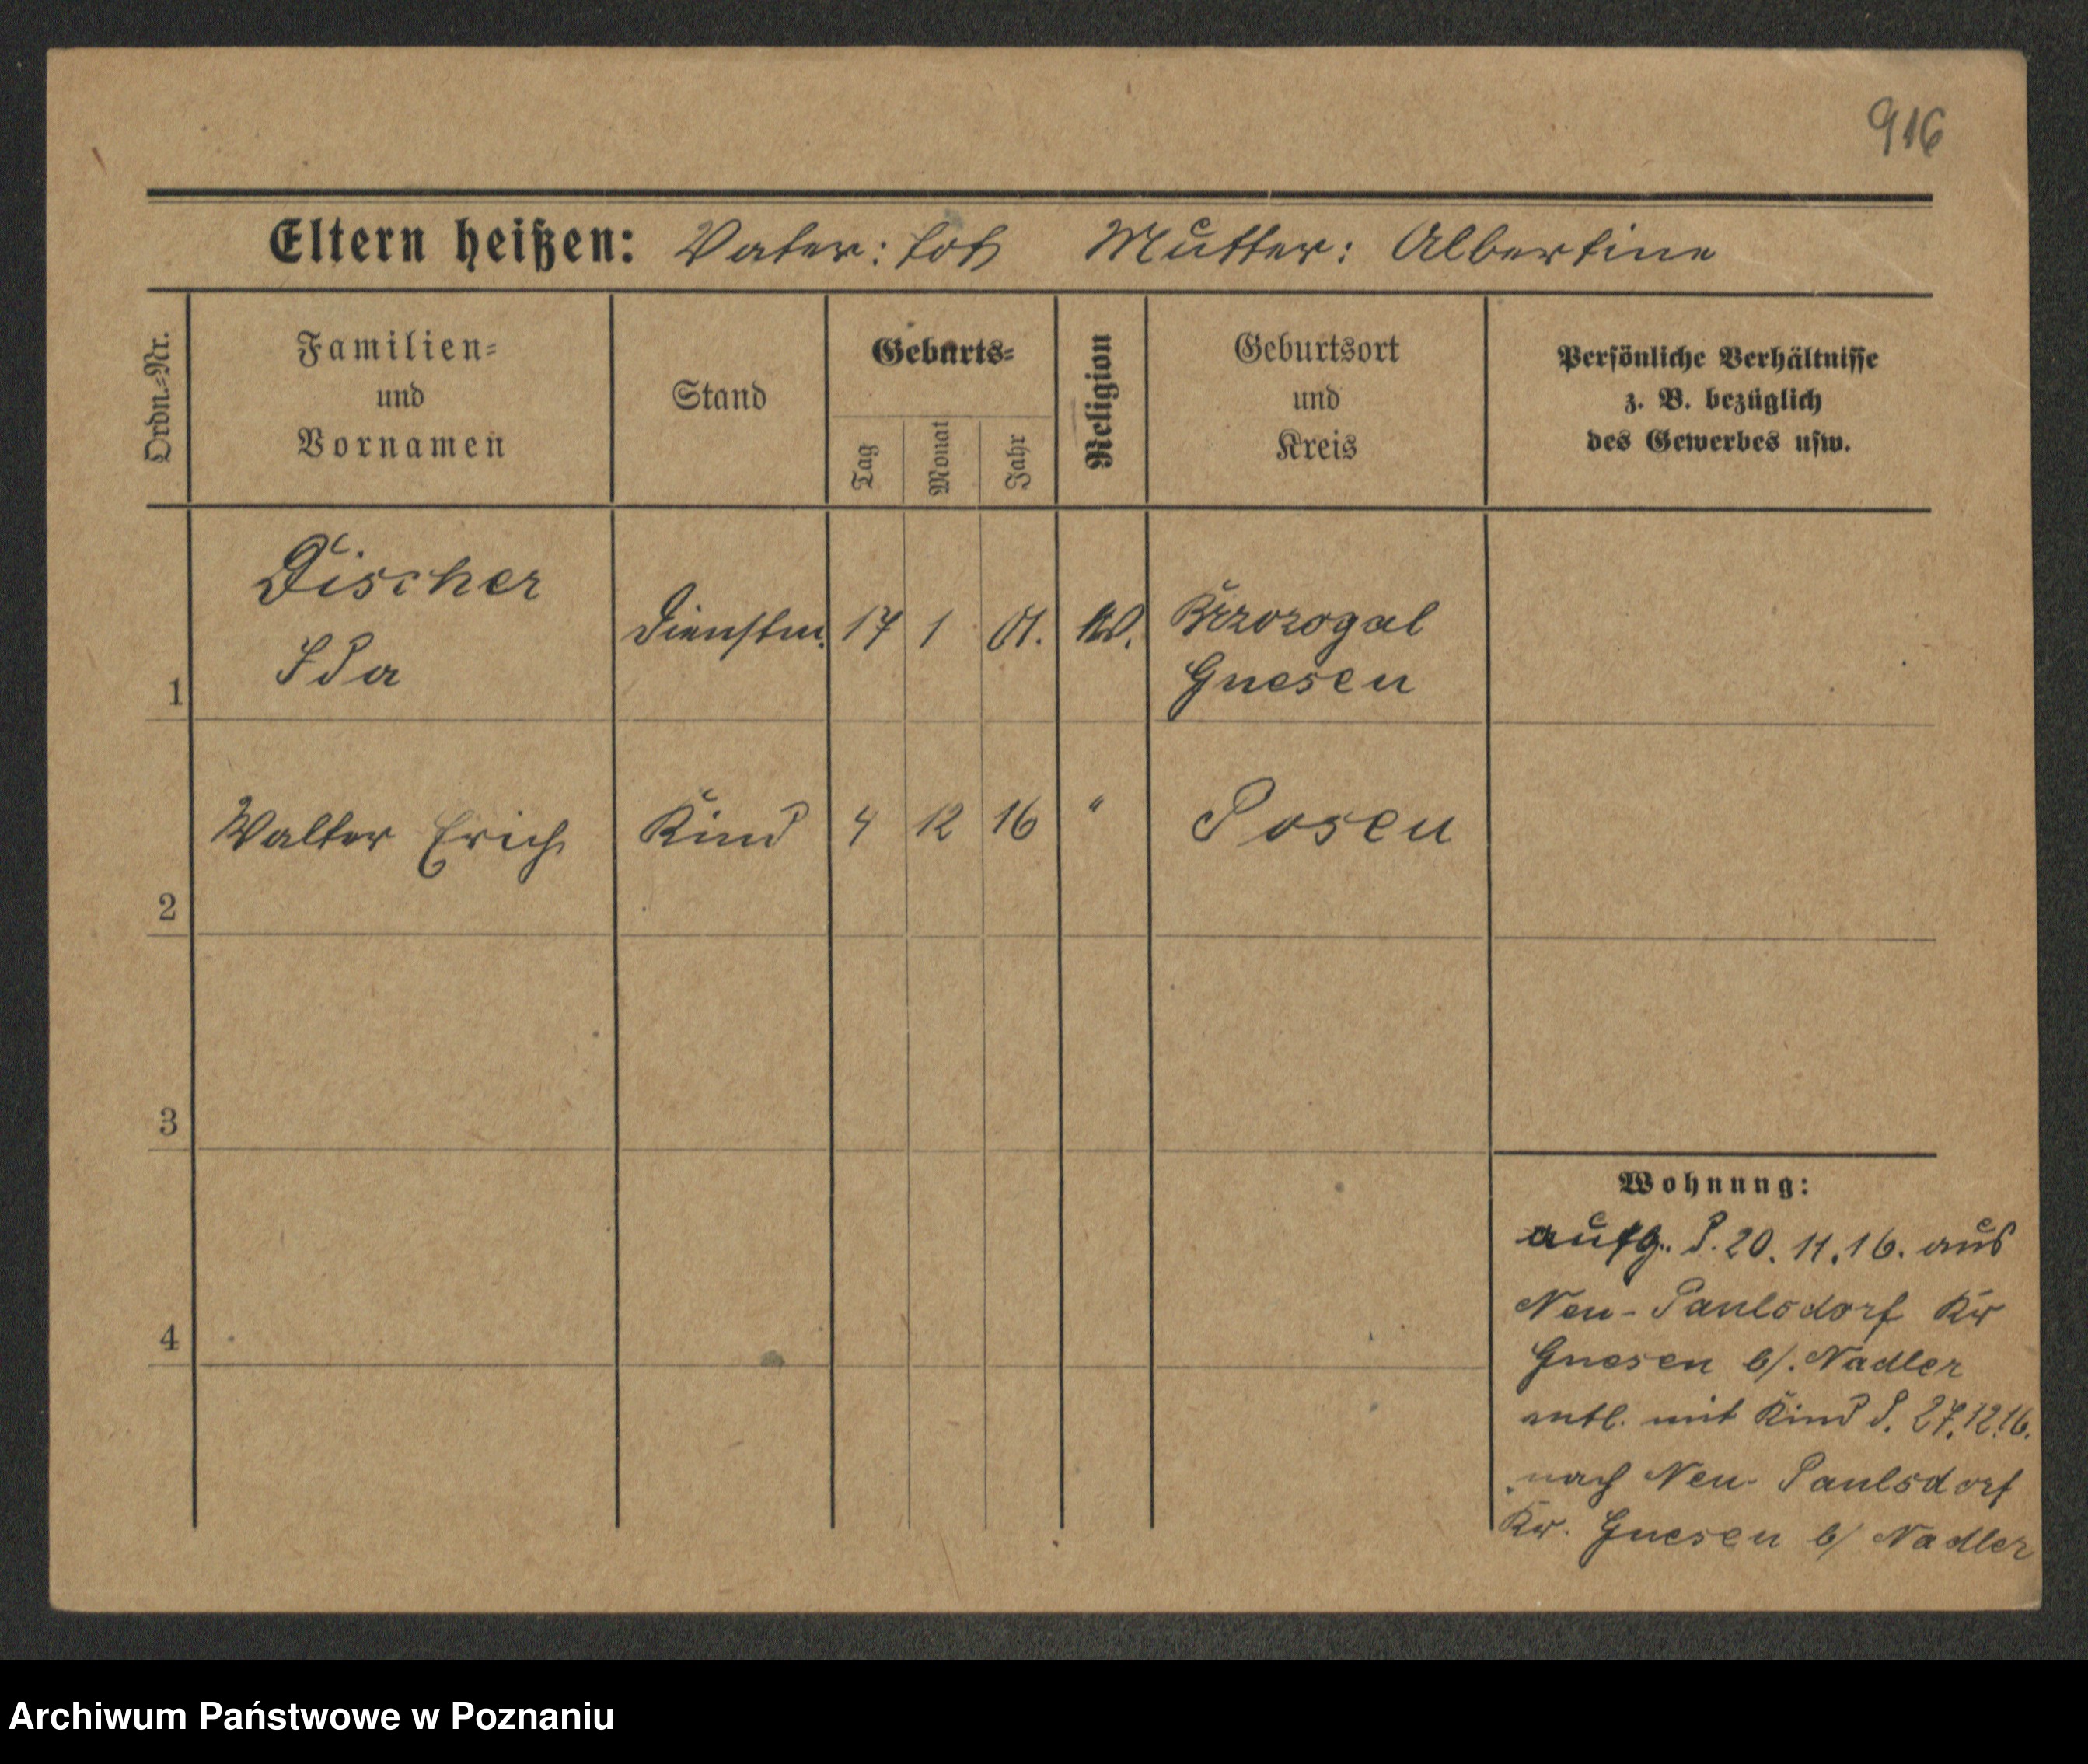 916
Eltern heißen: Vater: tot Mutter: Albertine
Ordn.-Nr.
Familien-
und
Vornamen
Stand
Geburts-
Tag
Monat
Jahr
Religion
Geburtsort
und
Kreis
Persönliche Verhältnisse
z. B. bezüglich
des Gewerbes usw.
1
Discher
Ida
Dienstm. 17 1 01.
Brzozogal
Gnesen
2
Walter Erich Kind 4 12 16 " Posen
3
4
Wohnung:
aufg. d. 20.11.16. aus
Neu-Paulsdorf Kr
Gnesen b/. Nadler
entl. mit Kind d. 27.12.16.
nach Neu-Paulsdorf
Kr. Gnesen b/ Nadler
Archiwum Państwowe w Poznaniu